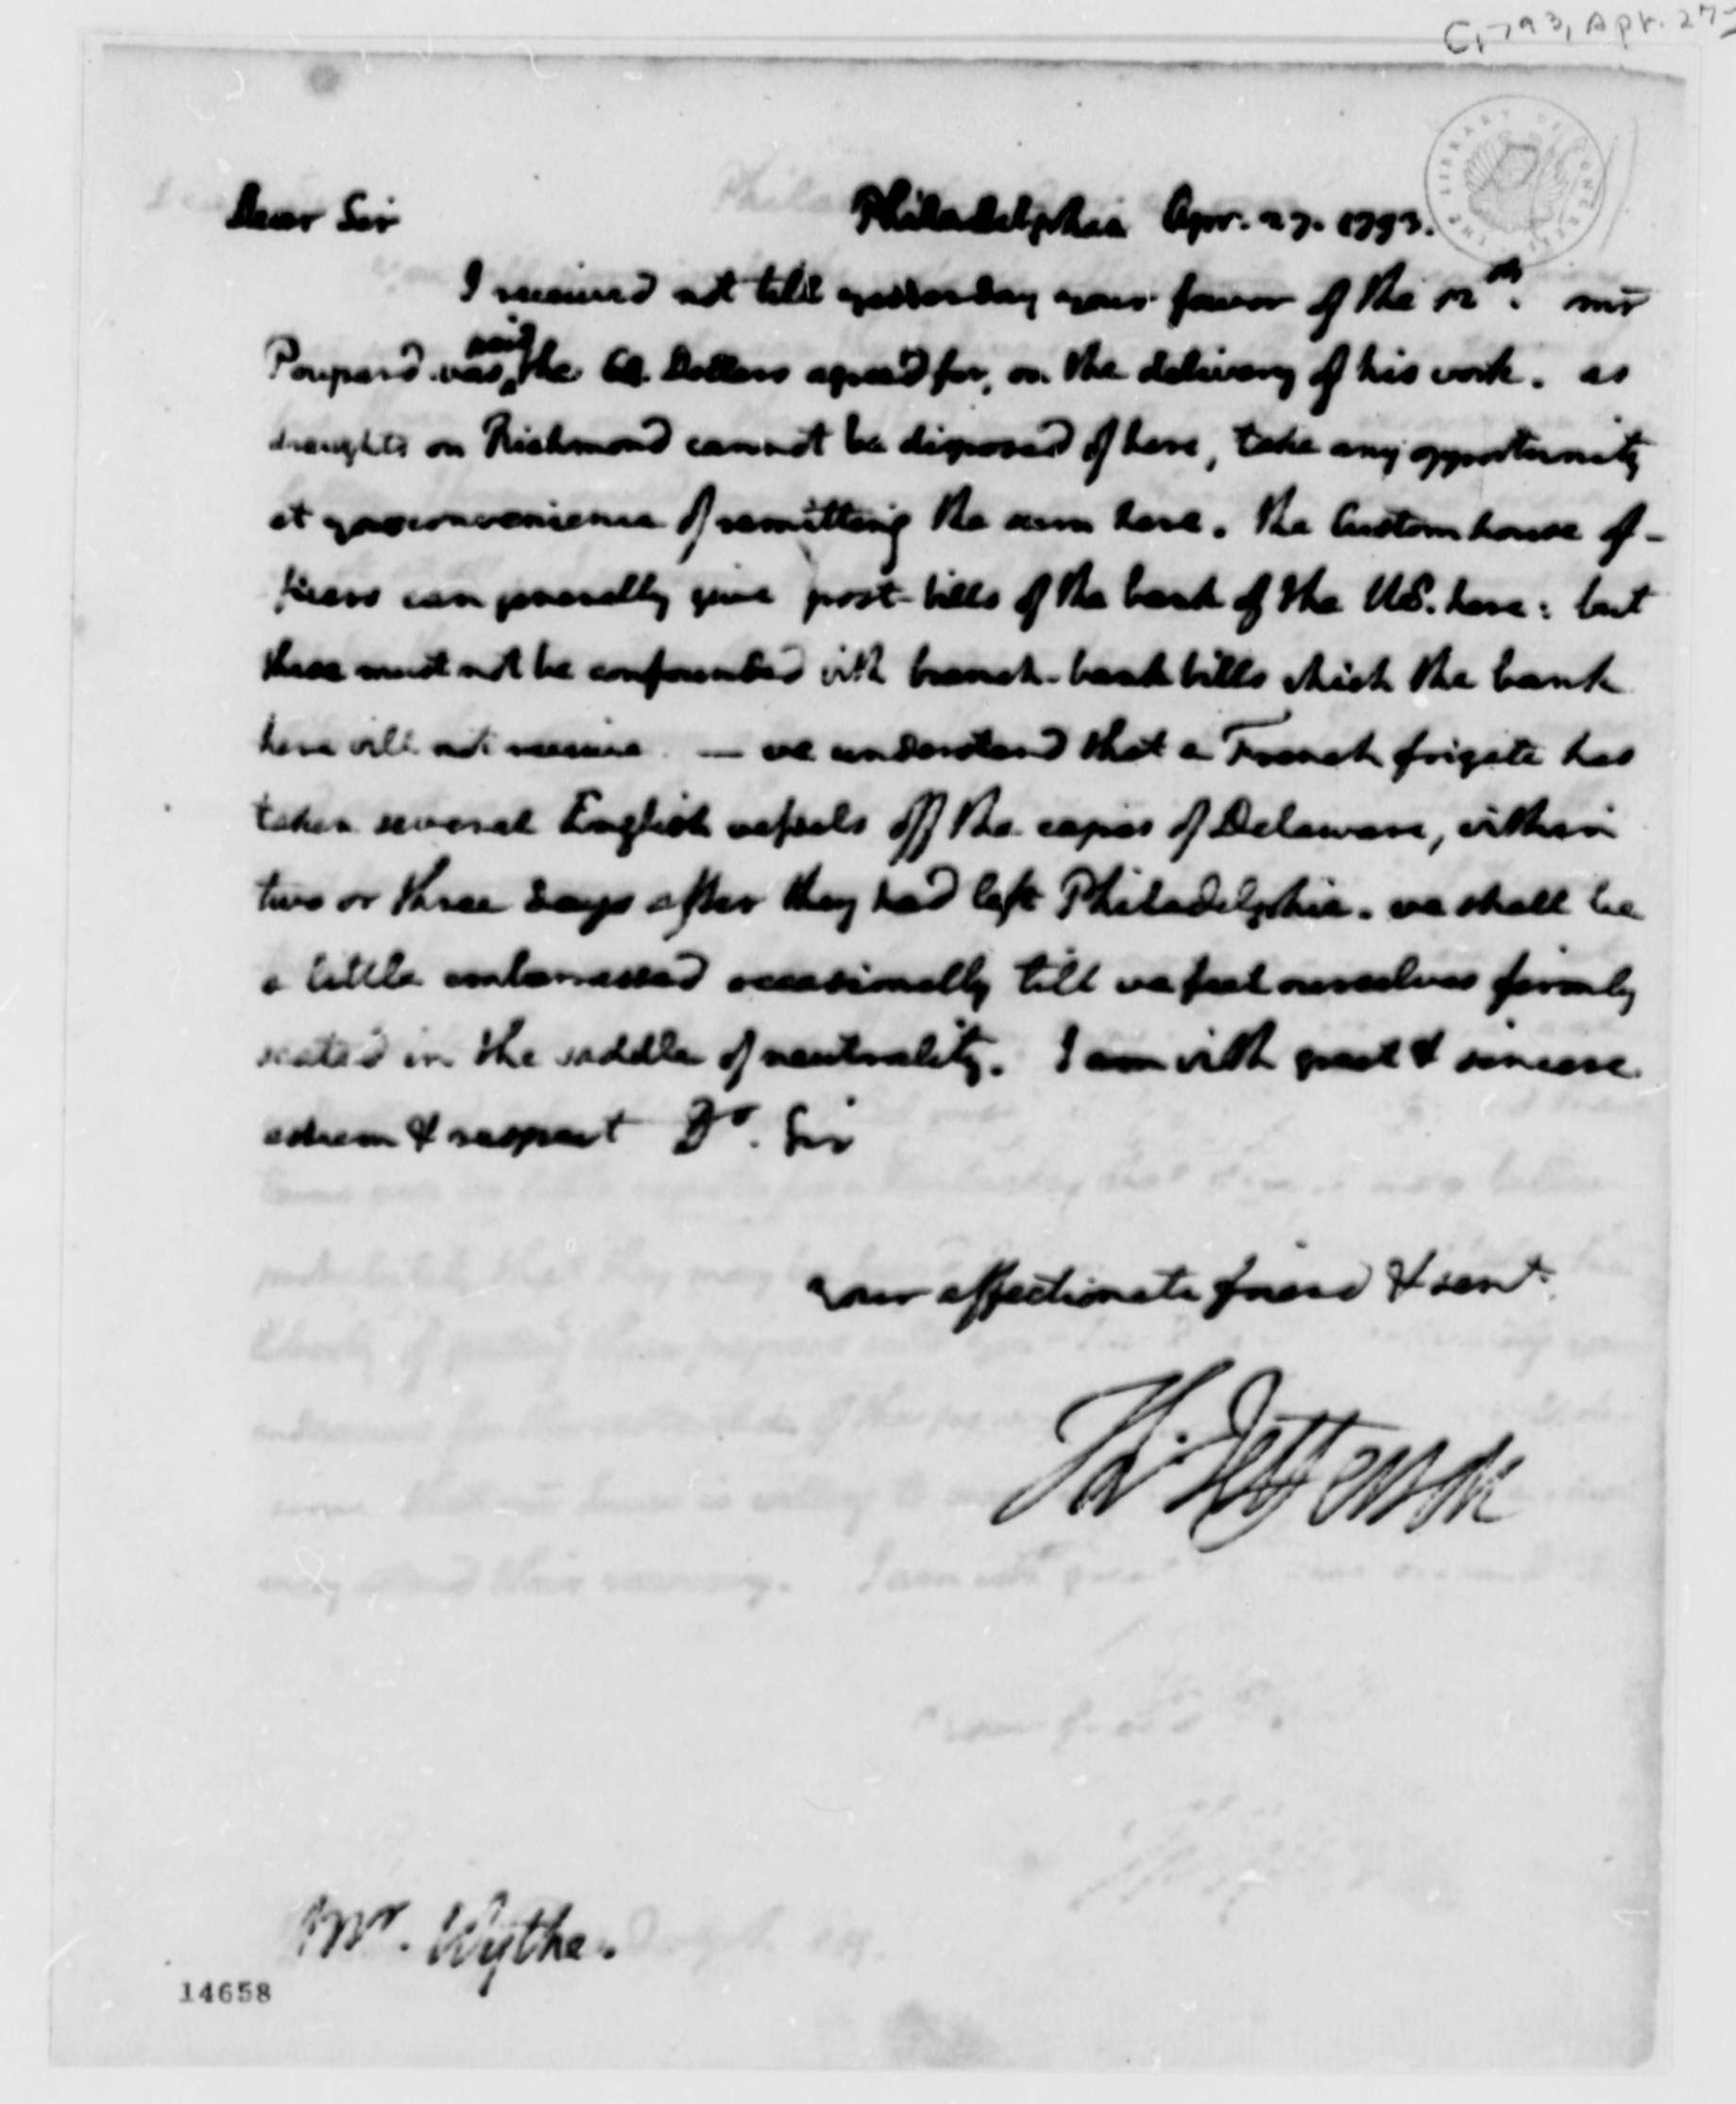 C1793, Apr. 27
THE LIBRARY OF CONGRESS
Dear Sir Philadelphia Apr. 27. 1793.
I received not till yesterday your favor of the 12th. mr
Poupard was paid the Dollars agreed for, on the delivery of his work. as
draughts on Richmond cannot be disposed of here, take any opportunity
at your convenience of remitting the sum here. the Custom house of-
ficers can generally give post-bills of the bank of the U.S. here: but
these must not be confounded with branch-bank bills which the bank
here will not receive. — we understand that a French frigate has
taken several English vessels off the capes of Delaware, within
two or three days after they had left Philadelphia. we shall be
a little embarrassed occasionally till we feel ourselves firmly
seated in the saddle of neutrality. I am with great & sincere
esteem & respect Dr. Sir
your affectionate friend & servt.
Th: Jefferson
Mr. Wythe.
14658